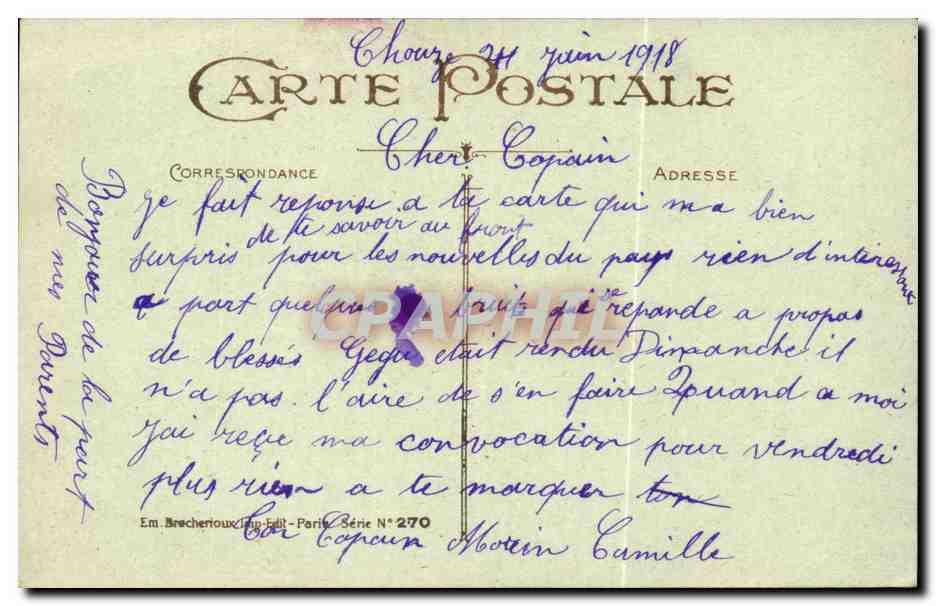 Chouzé 24 juin 1918
CARTE POSTALE
Cher Copain
CORRESPONDANCE
ADRESSE
je fait reponse a ta carte qui m a bien
surpris de te savoir au front pour les nouvelles du pays rien d'intéressant
a part quelques bruits qui se reponde a propos
de blessés Gegu etait rendu Dimanche il
n'a pas l'aire de s'en faire Quand a moi
j'ai reçue ma convocation pour vendredi
plus rien a te marquer
Ton Copain Morin Camille
Em. Brocherioux Imp-Edit - Paris Série N° 270
Bonjour de la part
de mes Parents
CPAPHIL